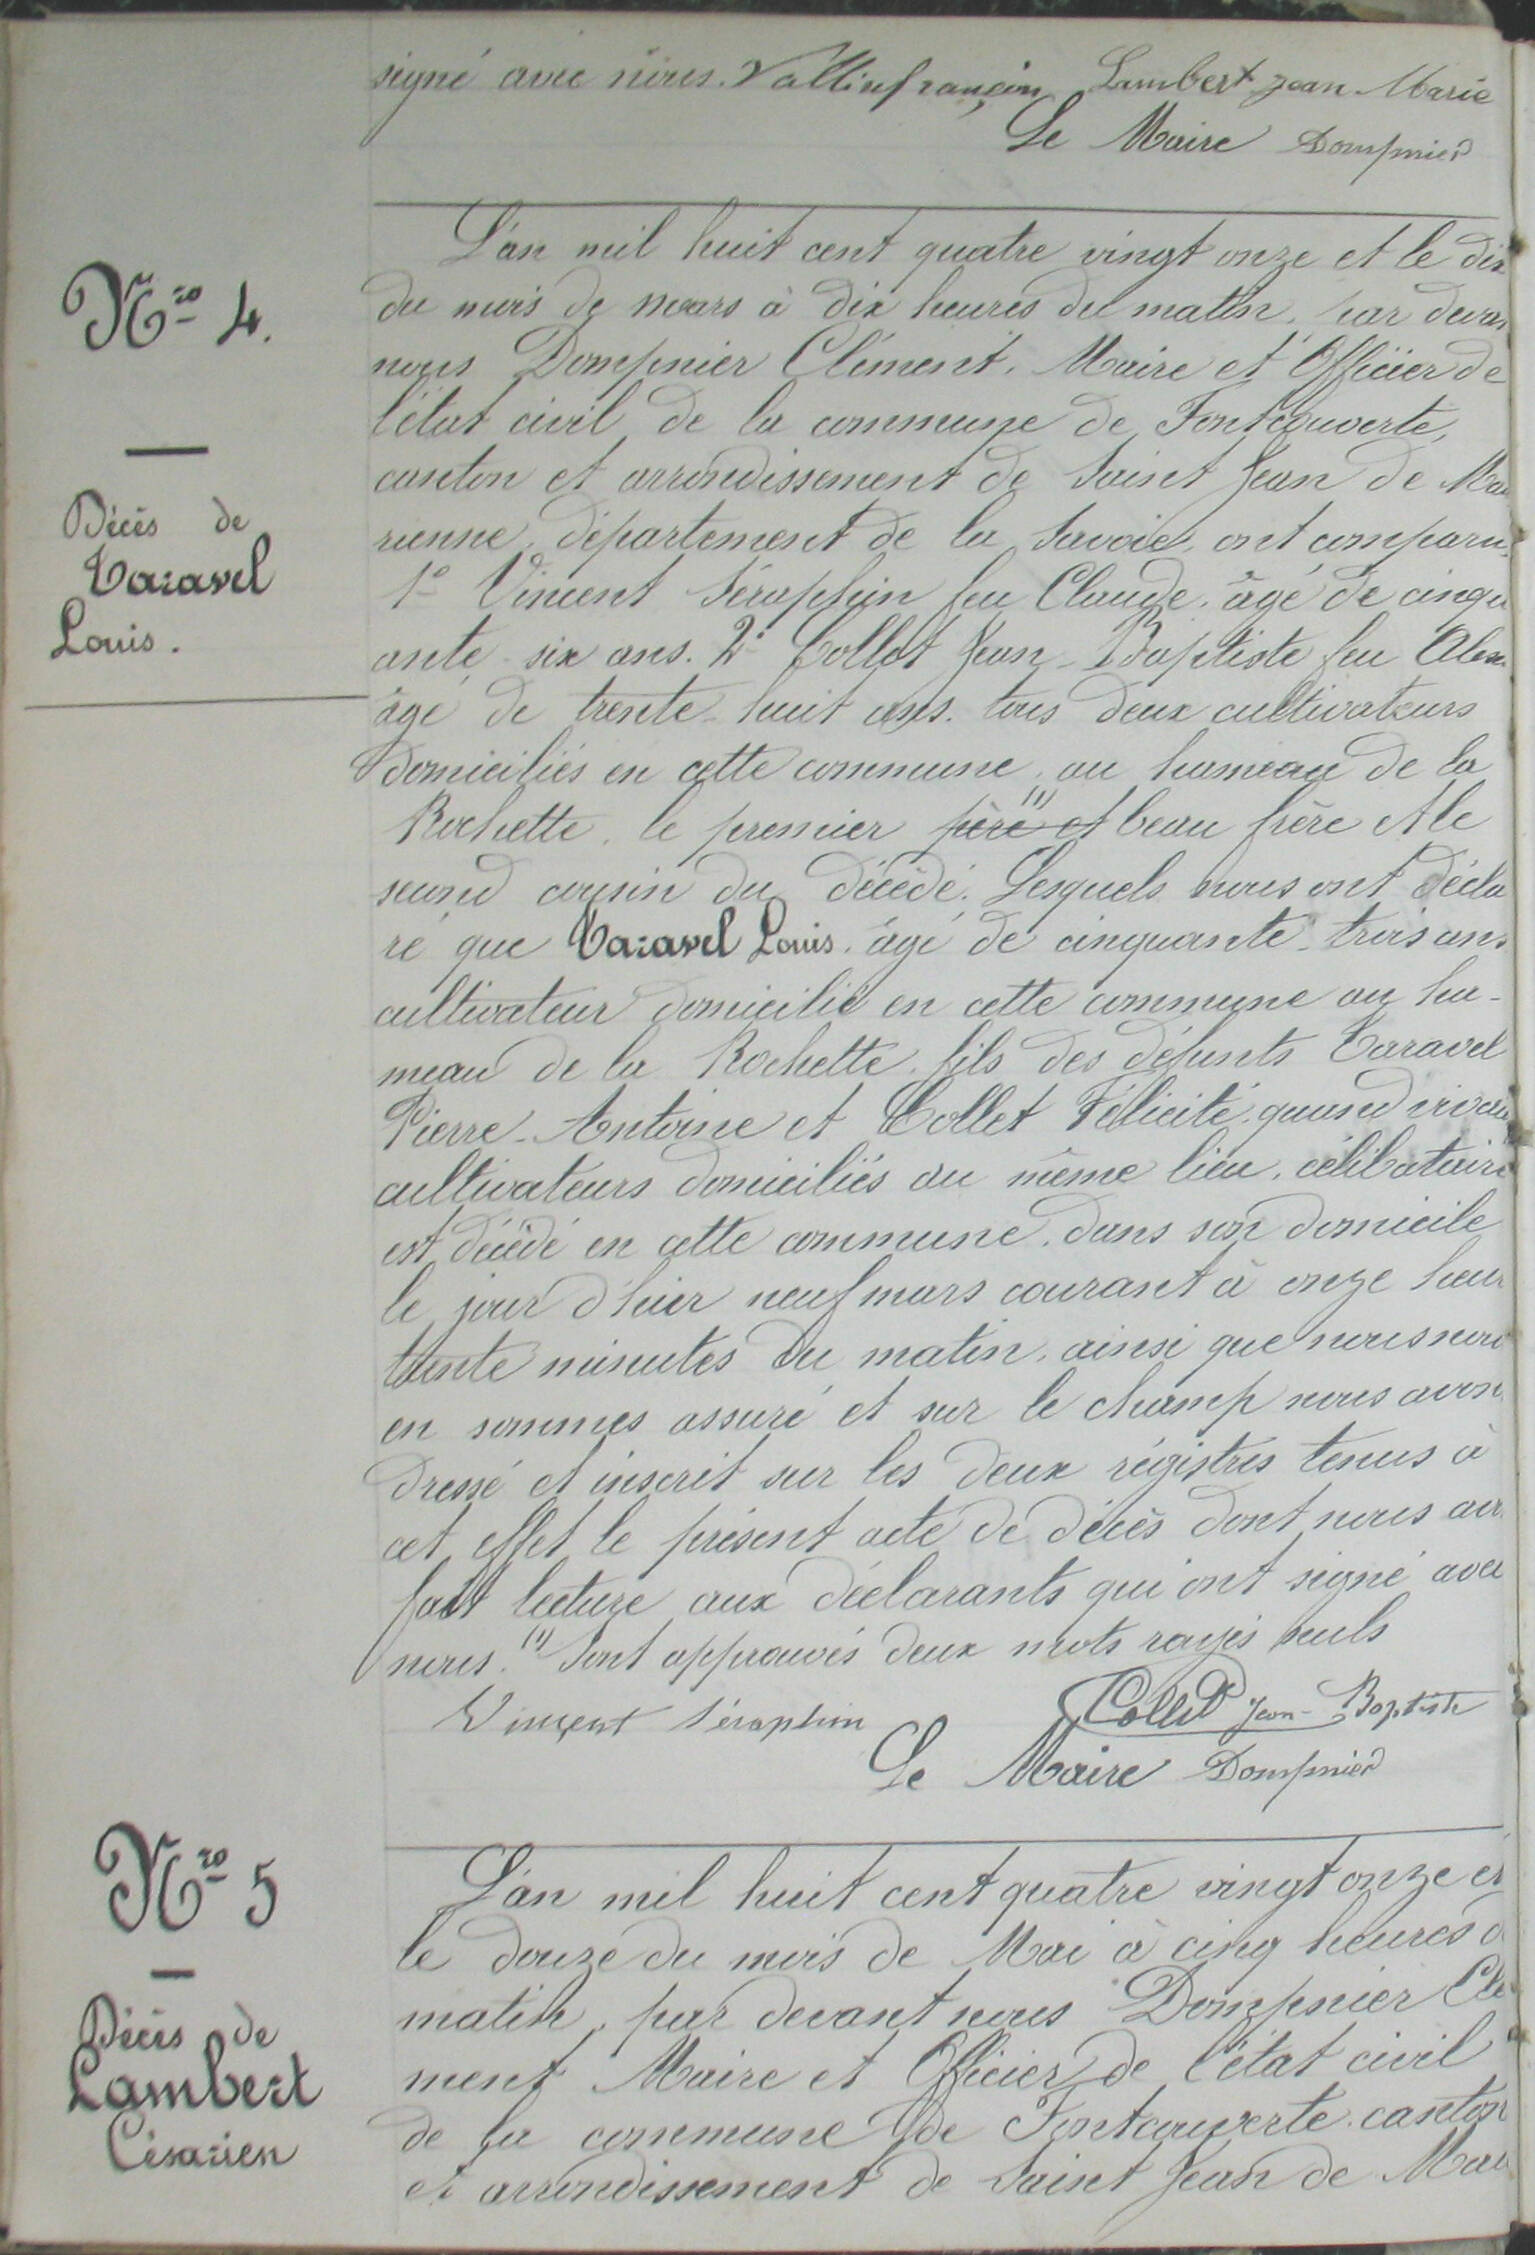 signé avec nous. Vallinfrançois Lambert Jean Marie
Le Maire Dompnier
Nro 4.
Décès de
Taravel
Louis.
L'an mil huit cent quatre vingt onze et le dix
du mois de mars à dix heures du matin, par devan
nous Dompnier Clément, Maire et Officier de
l'état civil de la commune de Fontcouverte,
canton et arrondissement de Saint Jean de Mau
rienne, département de la Savoie, ont comparu:
1° Vincent Séraphin feu Claude, âgé de cinqu
ante-six ans. 2° Collet Jean-Baptiste feu Alexi
âgé de trente-huit ans. tous deux cultivateurs
domiciliés en cette commune, au hameau de la
Rochette, le premier père et (1) beau frère et le
second cousin du décédé. Lesquels nous ont décla
ré que Taravel Louis, âgé de cinquante-trois ans
cultivateur domicilié en cette commune au ha-
meau de la Rochette, fils des défunts Taravel
Pierre-Antoine et Collet Félicité, quand vivai
cultivateurs domiciliés au même lieu, célibataire
est décédé en cette commune, dans son domicile
le jour d'hier neuf mars courant à onze heur
trente minutes du matin, ainsi que nous nous
en sommes assuré et sur le champ nous avons
dressé et inscrit sur les deux régistres tenus à
cet effet le présent acte de décès dont nous avo
fait lecture aux déclarants qui ont signé avec
nous. (1) Sont approuvés deux mots rayés nuls
Vincent Séraphin Collet Jean-Baptiste
Le Maire Dompnier
Nro 5
Décès de
Lambert
Césarien
L'an mil huit cent quatre vingt onze et
le douze du mois de Mai à cinq heures d
matin, par devant nous Dompnier Clé
ment Maire et Officier de l'état civil
de la commune de Fontcouverte, canton
et arrondissement de Saint Jean de Mau